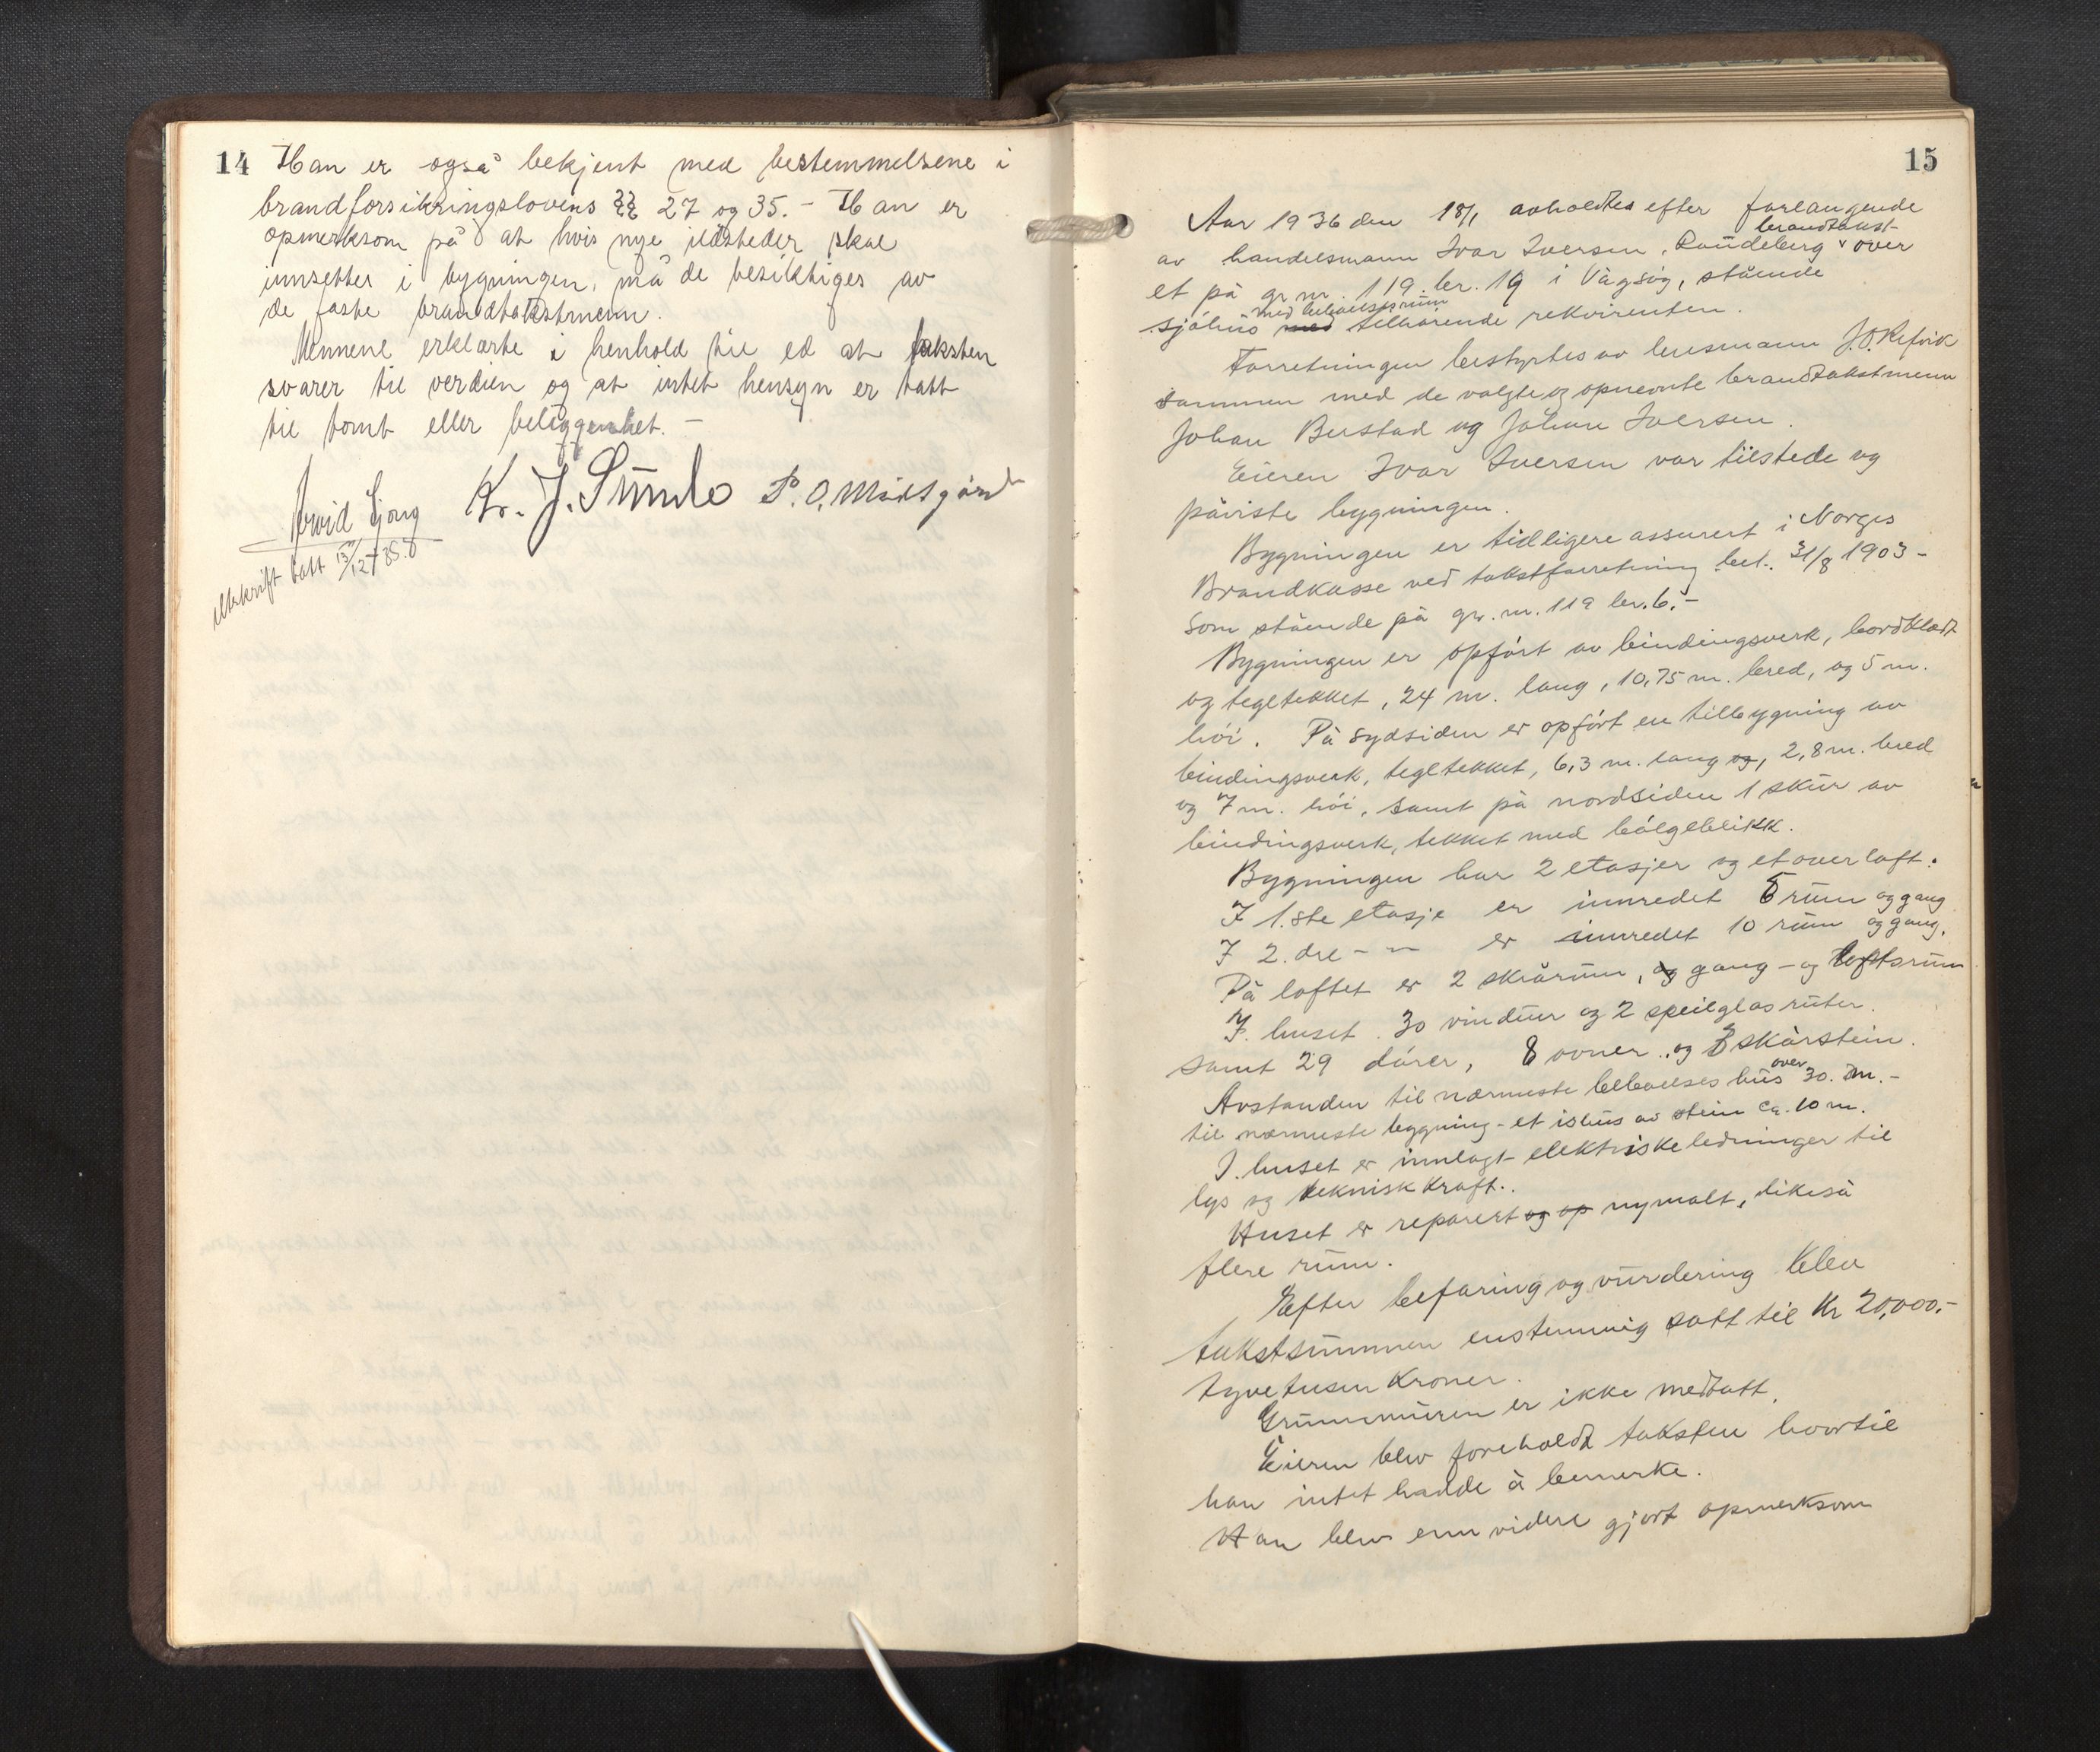 14 Han er også bekjent med bestemmelsene i
brandforsikringslovens §§ 27 og 35. - Han er
opmerksom på at hvis nye ildsteder skal
innsettes i bygningen, må de besiktiges av
de faste brandtakstmenn.
Mennene erklærte i henhold til ed at taksten
svarer til verdien og at intet hensyn er tatt
til tomt eller beliggenhet. -
Arvid Ljong Kr. J. Sunde P. O. Midtgård
Utskrift tatt 13/12 - 35.
15
Aar 1936 den 18/1 avholdtes efter forlangende
av handelsmann Ivar Iversen, Raudeberg brandtakst over
et på gr. nr. 119 br. 19 i Vågsøy, stående
sjøhus med beboelsesrum med tilhørende rekvirenten.
Forretningen bestyrtes av lensmann J. O. Refvik
sammen med de valgte og opnevnte brandtakstmenn
Johan Bustad og Johan Iversen.
Eieren Ivar Iversen var tilstede og
påviste bygningen.
Bygningen er tidligere assurert i Norges
Brandkasse ved takstforretning bet. 31/8 1903 -
som stående på gr. nr. 119 br. 6. -
Bygningen er opført av bindingsverk, bordklædt
og tegltekket, 24 m. lang, 10,75 m. bred, og 5 m.
høi. På sydsiden er opført en tilbygning av
bindingsverk, tegltekket, 6,3 m. lang og, 2,8 m. bred
og 7 m. høi, samt på nordsiden 1 skur av
bindingsverk, tekket med bølgeblikk.
Bygningen har 2 etasjer og et overloft.
I 1.ste etasje er innredet rum og gang
I 2. dre - " - er innredet 10 rum og gang.
På loftet er 2 skrårum, og gang - og loftsrum
I huset 30 vinduer og 2 speilglasruter.
samt 29 dører, 8 ovner og skårstein.
Avstanden til nærmeste beboelseshus over 30. m. -
til nærmeste bygning - et ishus av stein ca. 10 m.
I huset er innlagt elektriske ledninger til
lys og teknisk kraft.
Huset er reparert og op nymalt, likeså
flere rum.
Efter befaring og vurdering blev
takstsummen enstemmig satt til Kr 20,000.-
tyvetusen Kroner.
Grunnmuren er ikke medtatt.
Eieren blev foreholdt taksten hvortil
han intet hadde å bemerke.
Han blev enn videre gjort opmerksom